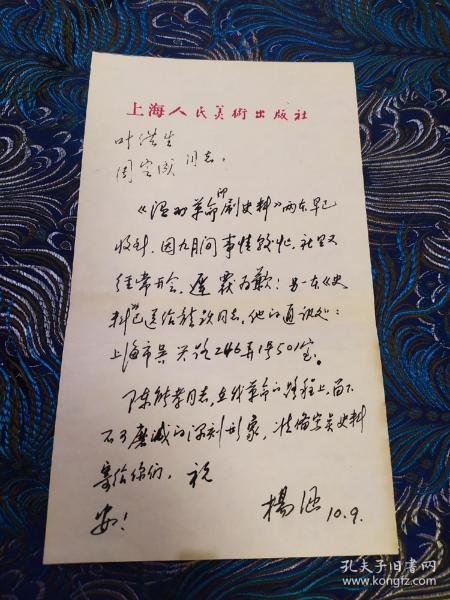 上海人民美術出版社
叶洪生
周定国 同志：
《温州革命印刷史料》两本早已
收到，因九月间事情较忙，社里又
经常开会，迟覆为歉！另一本《史
料》已送给龙跃同志，他的通讯処：
上海市吴兴路246弄1号501室。
陈继孝同志，在我革命的路程上，留下
不可磨滅的深刻形象，准备写点史料
寄给你们，祝
安！
楊涵 10.9.
孔夫子旧书网
www.kongfz.com